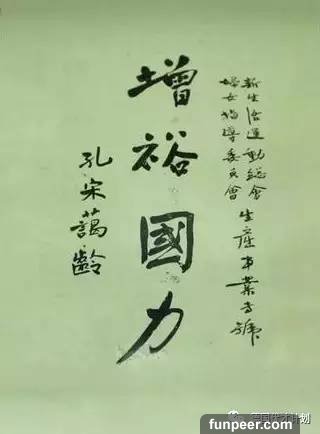 新生活運動總會
婦女指導委員會
生產事業專號
增裕國力
孔宋藹齡
funpeer.com